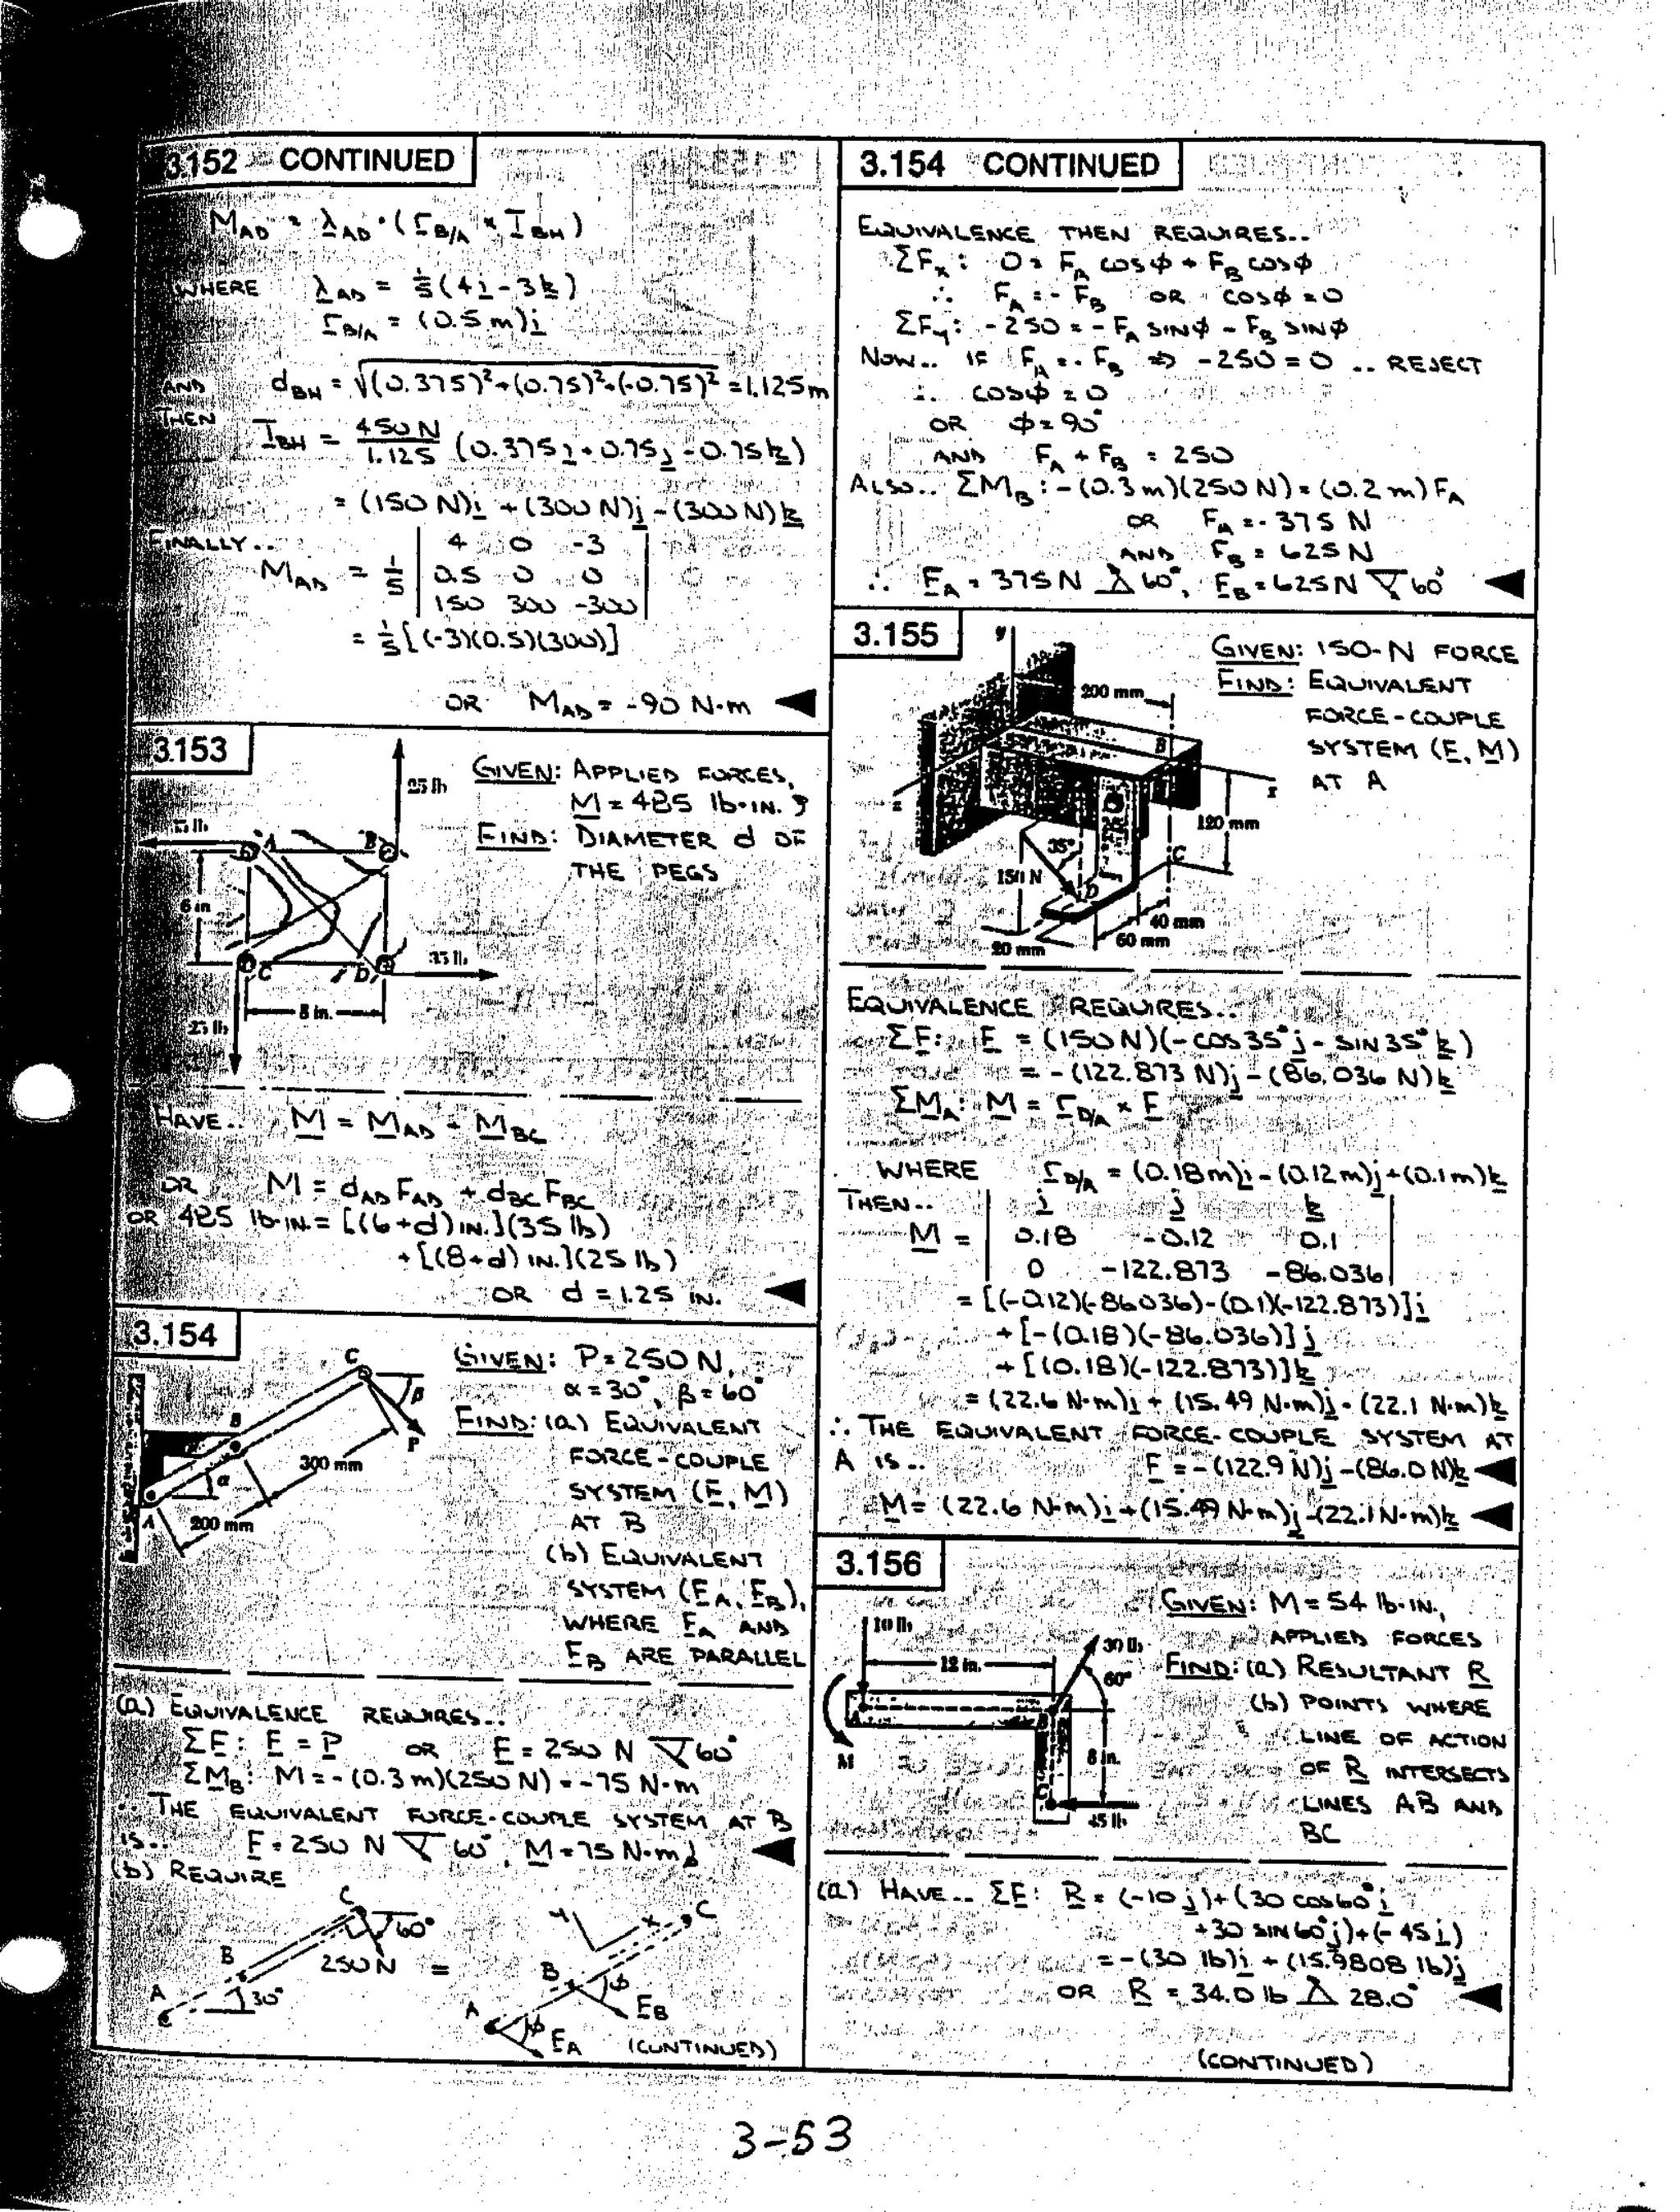 3.152 CONTINUED
M_AD = λ_AD · (r_B/A × T_BH)
WHERE λ_AD = 1/5 (4i - 3k)
r_B/A = (0.5 m)i
AND d_BH = √((0.375)² + (0.75)² + (-0.75)²) = 1.125 m
THEN T_BH = 450 N / 1.125 (0.375i + 0.75j - 0.75k)
= (150 N)i + (300 N)j - (300 N)k
FINALLY..
M_AD = 1/5 | 4 0 -3 |
| 0.5 0 0 |
| 150 300 -300 |
= 1/5 [(-3)(0.5)(300)]
OR M_AD = -90 N·m ◀
3.153
GIVEN: APPLIED FORCES,
M = 485 lb·IN.
FIND: DIAMETER d OF
THE PEGS
25 lb
35 lb
A
B
6 in
C
D
35 lb
8 in.
25 lb
HAVE.. M = M_AD + M_BC
OR M = d_AD F_AD + d_BC F_BC
OR 485 lb·IN. = [(6+d) IN.](35 lb)
+ [(8+d) IN.](25 lb)
OR d = 1.25 IN. ◀
3.154
GIVEN: P = 250 N,
α = 30°, β = 60°
FIND: (a) EQUIVALENT
FORCE-COUPLE
SYSTEM (F, M)
AT B
(b) EQUIVALENT
SYSTEM (F_A, F_B),
WHERE F_A AND
F_B ARE PARALLEL
C
β
B
P
300 mm
α
A
200 mm
(a) EQUIVALENCE REQUIRES..
ΣF: F = P OR F = 250 N 60°
ΣM_B: M = -(0.3 m)(250 N) = -75 N·m
∴ THE EQUIVALENT FORCE-COUPLE SYSTEM AT B
IS.. F = 250 N 60°, M = 75 N·m ◀
(b) REQUIRE
C
60°
B
250 N =
A
30°
y
x
C
B
φ
F_B
A
φ
F_A
(CONTINUED)
3.154 CONTINUED
EQUIVALENCE THEN REQUIRES..
ΣF_x: 0 = F_A cosφ + F_B cosφ
∴ F_A = -F_B OR cosφ = 0
ΣF_y: -250 = -F_A SINφ - F_B SINφ
NOW.. IF F_A = -F_B ⇒ -250 = 0 .. REJECT
∴ cosφ = 0
OR φ = 90°
AND F_A + F_B = 250
ALSO.. ΣM_B: -(0.3 m)(250 N) = (0.2 m) F_A
OR F_A = -375 N
AND F_B = 625 N
∴ F_A = 375 N 60°, F_B = 625 N 60° ◀
3.155
GIVEN: 150-N FORCE
FIND: EQUIVALENT
FORCE-COUPLE
SYSTEM (F, M)
AT A
y
200 mm
B
x
z
120 mm
35°
C
150 N
D
40 mm
60 mm
20 mm
EQUIVALENCE REQUIRES..
ΣF: F = (150 N)(-cos35° j - SIN35° k)
= -(122.873 N)j - (86.036 N)k
ΣM_A: M = r_D/A × F
WHERE r_D/A = (0.18 m)i - (0.12 m)j + (0.1 m)k
THEN..
M = | i j k |
| 0.18 -0.12 0.1 |
| 0 -122.873 -86.036 |
= [(-0.12)(-86.036) - (0.1)(-122.873)]i
+ [-(0.18)(-86.036)]j
+ [(0.18)(-122.873)]k
= (22.6 N·m)i + (15.49 N·m)j - (22.1 N·m)k
∴ THE EQUIVALENT FORCE-COUPLE SYSTEM AT
A IS.. F = -(122.9 N)j - (86.0 N)k ◀
M = (22.6 N·m)i + (15.49 N·m)j - (22.1 N·m)k ◀
3.156
GIVEN: M = 54 lb·IN.,
APPLIED FORCES
FIND: (a) RESULTANT R
(b) POINTS WHERE
LINE OF ACTION
OF R INTERSECTS
LINES AB AND
BC
10 lb
30 lb
12 in.
60°
A
B
M
8 in.
C
45 lb
(a) HAVE.. ΣF: R = (-10 j) + (30 cos60° i
+ 30 SIN60° j) + (-45 i)
= -(30 lb)i + (15.9808 lb)j
OR R = 34.0 lb 28.0° ◀
(CONTINUED)
3-53